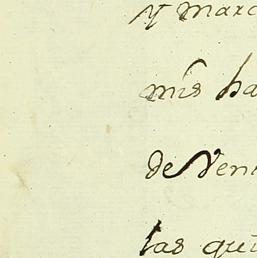 y marc
mis ha
de Veni
las que